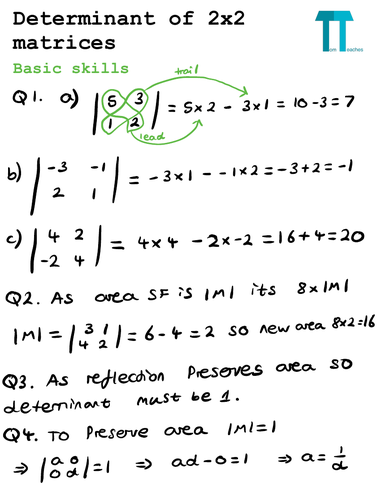 Determinant of 2x2
matrices
TT
Tom Teaches
Basic skills
trail
Q1. a) |5 3; 1 2| = 5x2 - 3x1 = 10-3=7
lead
b) |-3 -1; 2 1| = -3x1 - -1x2 = -3+2 = -1
c) |4 2; -2 4| = 4x4 - 2x-2 = 16+4 = 20
Q2. As area SF is |M| its 8x|M|
|M| = |3 1; 4 2| = 6-4 = 2 so new area 8x2=16
Q3. As reflection preserves area so
determinant must be 1.
Q4. To preserve area |M|=1
⇒ |a 0; 0 d| = 1 ⇒ ad-0=1 ⇒ a = 1/d